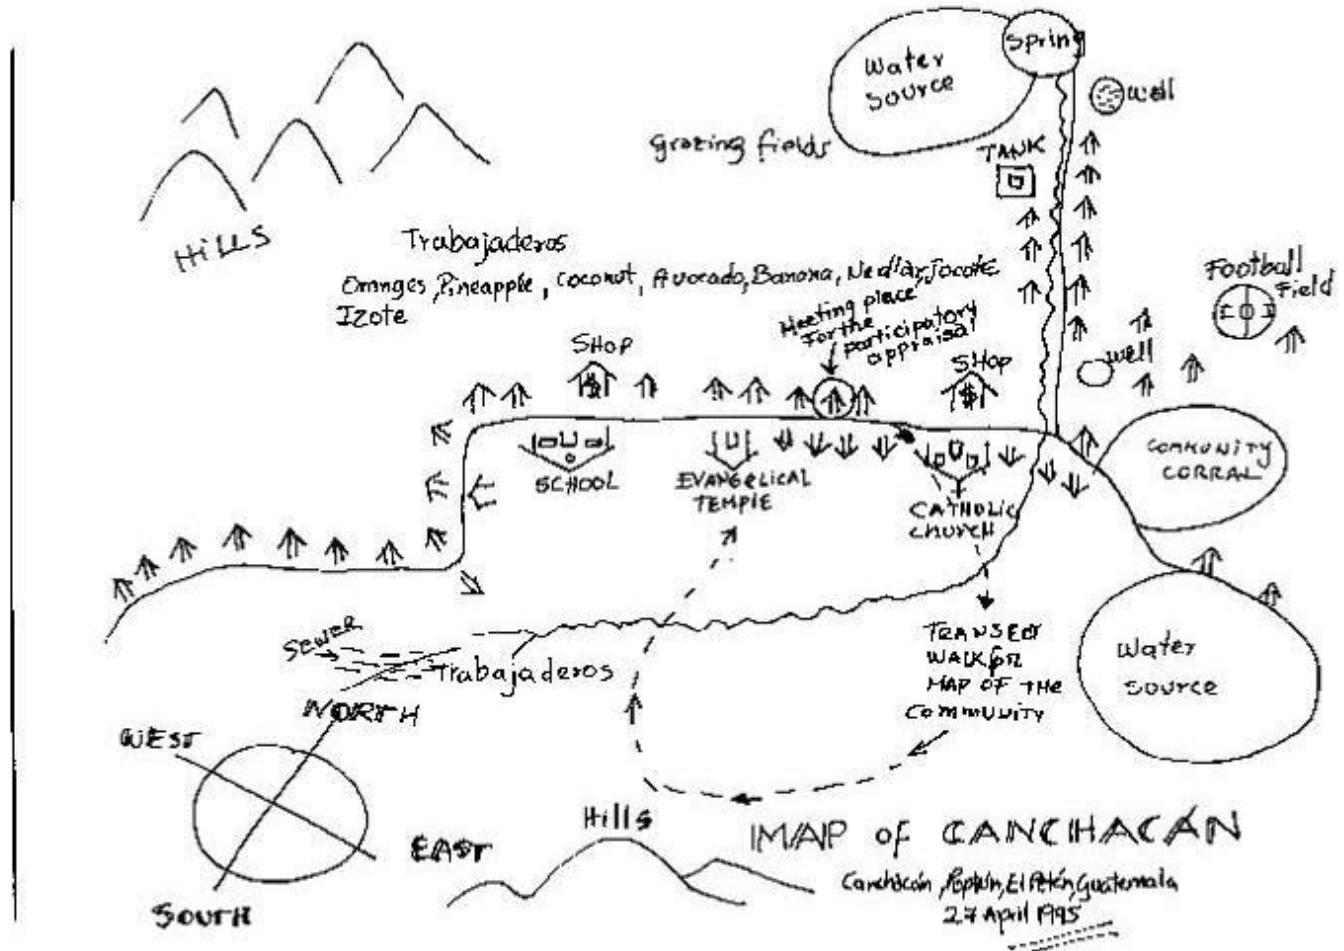 Spring
Water
Source
Well
grazing fields
TANK
HILLS
Trabajaderos
Oranges, Pineapple, Coconut, Avocado, Banana, Jocote
Izote
Football
Field
Meeting place
For the
participatory
appraisal
SHOP
SHOP
Well
COMMUNITY
CORRAL
SCHOOL
EVANGELICAL
TEMPLE
CATHOLIC
Church
SEWER
Trabajaderos
TRANSECT
WALK for
MAP OF THE
COMMUNITY
Water
Source
NORTH
WEST
EAST
SOUTH
Hills
MAP of CANCHACÁN
Canchacán, Poptún, El Petén, Guatemala
27 April 1995